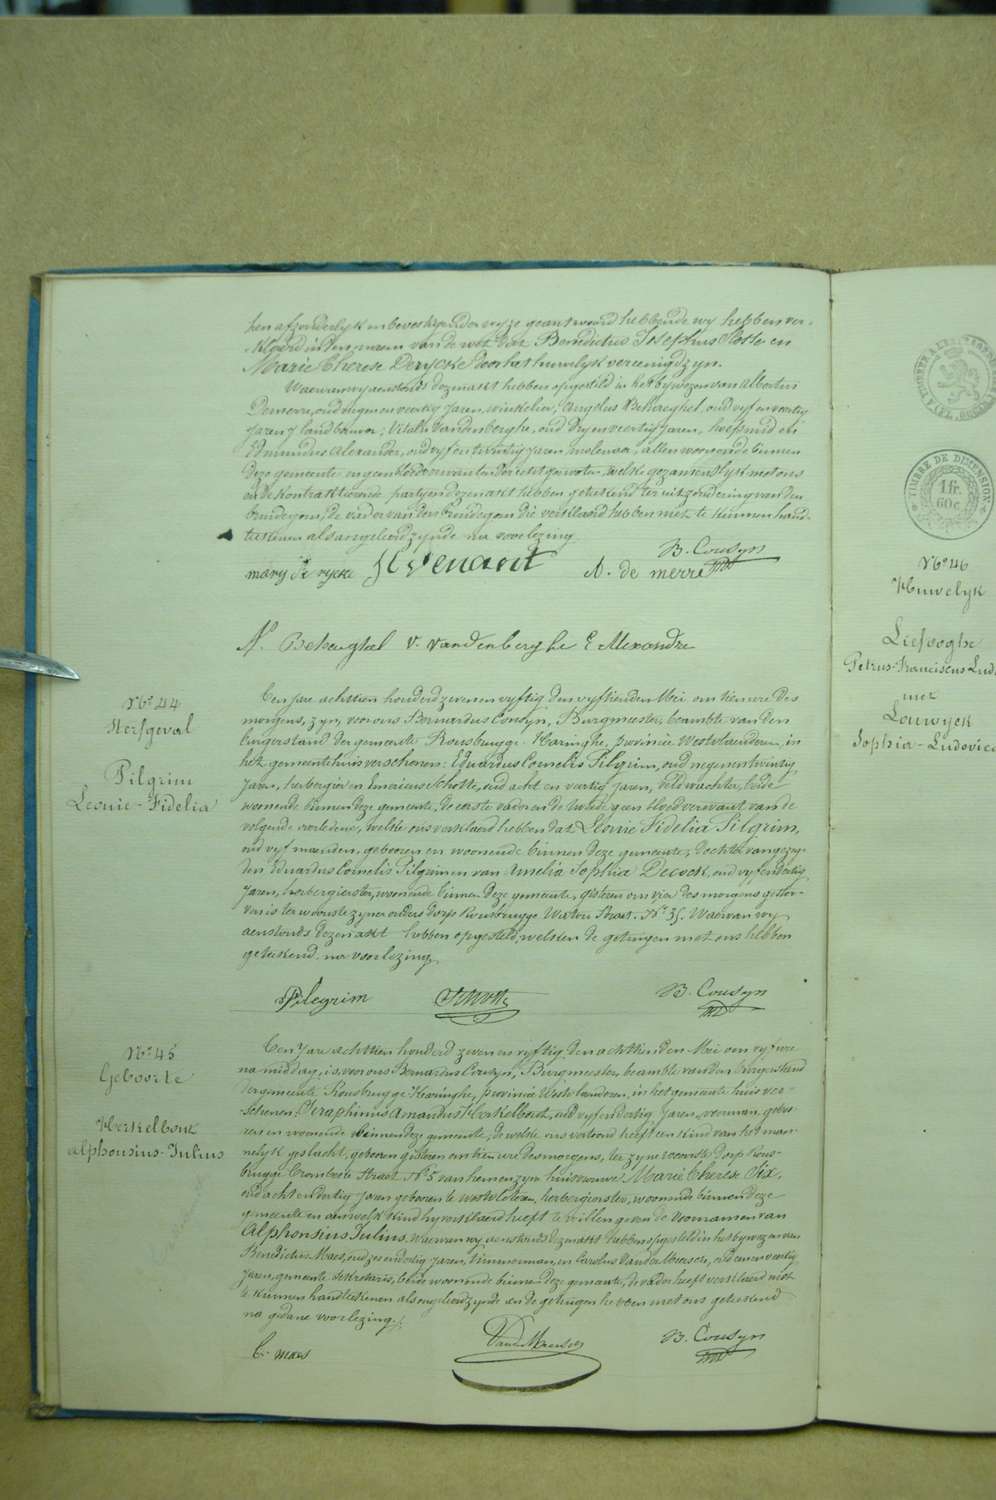 hen afzonderlyk en bevestigender wyze geantwoord hebbende wy hebben ver-
klaard in den naam van de wet dat Benedictus Josephus Hotte en
Marie Therese Derycke door het huwelyk vereenigd zyn.
Waervan wy aenstonds dezen akt hebben opgesteld in het bywezen van Albertus
Demerre, oud negen en veertig Jaren, winkelier, Angelus Beheeghel, oud vyf en veertig
Jaren, landbouwer, Vitalis Vandenberghe, oud dry en veertig Jaren, hoefsmid en
Edmundus Alexander, oud vyf en twintig Jaren molenaer, allen woonende binnen
deze gemeente, en geen bloedverwanten der echtgenooten, welke gezamentlyk met ons
en de kontrakteerende partyen dezen akt hebben geteekend ter uitzondering van den
bruidegom, de vader van den bruidegom die verklaerd hebben niet te kunnen hand-
teekenen als ongeleerd zynde na voorlezing
B. Cousyn
mary de rycke A. de merre
A. Beheeghel v. vandenberghe E Alexandre
N° 44
Sterfgeval
Pilgrim
Leonie-Fidelia
Een jare achttien honderd zeven en vyftig den vyftienden Mei om tien ure des
morgens, zyn, voor ons Bernardus Cousyn, Burgmeester, beambte van den
burgerstand der gemeente Rousbrugge-Haringhe, provincie Westvlaenderen, in
het gemeentehuis verschenen: Eduardus Cornelis Pilgrim, oud negenentwintig
Jaren, herbergier en Amerieus Schotte, oud acht en veertig Jaren, veldwachter, beide
woonende binnen deze gemeente, de eerste vader en de tweede geen bloedverwant van de
volgende overledene, welke ons verklaerd hebben dat Leonie Fidelia Pilgrim,
oud vyf maenden, geboren en woonende binnen deze gemeente, dochter van gezeg-
den Eduardus Cornelis Pilgrim en van Amelia Sophia Decock, oud vyfendertig
Jaren, herbergierster, woonende binnen deze gemeente, gisteren om vier des morgens gestor-
ven is ter woonste zyner ouders dorp Rousbrugge Watou Straet. N° 35. Waervan wy
aenstonds dezen akt hebben opgesteld, welken de getuigen met ons hebben
geteekend na voorlezing
Pilegrim Schotte B. Cousyn
N° 45
Geboorte
Kerkelbout
Alphonsius-Julius
Een Jare achttien honderd zeven en vyftig, den achttienden Mei om vyf ure
na middag, is voor ons Bernardus Cousyn, Burgmeester, beambte van den burgerstand
der gemeente Rousbrugge Haringhe, provincie Westvlaenderen, in het gemeentehuis ver-
schenen: Seraphinus Amandus Kerkelbout, oud vyfendertig Jaren, voerman, gebo-
ren en woonende binnen deze gemeente, de welke ons vertoond heeft een kind van het man-
nelyk geslacht, geboren gisteren om tien ure des morgens, ter zyne woonste dorp Rous-
brugge Crombeke Straet N° 5 van hem en zyne huisvrouwe Marie Therese Six,
oud acht en dertig Jaren geboren te Westvleteren, herbergierster, woonende binnen deze
gemeente en aen welk kind hy verklaerd heeft te willen geven de voornamen van
Alphonsius Julius. Waervan wy aenstonds dezen akt hebben opgesteld in het bywezen van
Benedictus Maes, oud zesendertig Jaren, timmerman, en Carolus Vandermeersch, oud een en veertig
Jaren, gemeente sekretaris, beide woonende binnen deze gemeente, de vader heeft verklaerd niet
te kunnen handteekenen als ongeleerd zynde en de getuigen hebben met ons geteekend
na gedane voorlezing.
B. maes B. Cousyn
TIMBRE DE DIMENSION
1 fr.
60 c.
N° 46
Huwelyk
Liefooghe
Petrus-Franciscus-Lud
met
Louwyck
Sophia-Ludovica